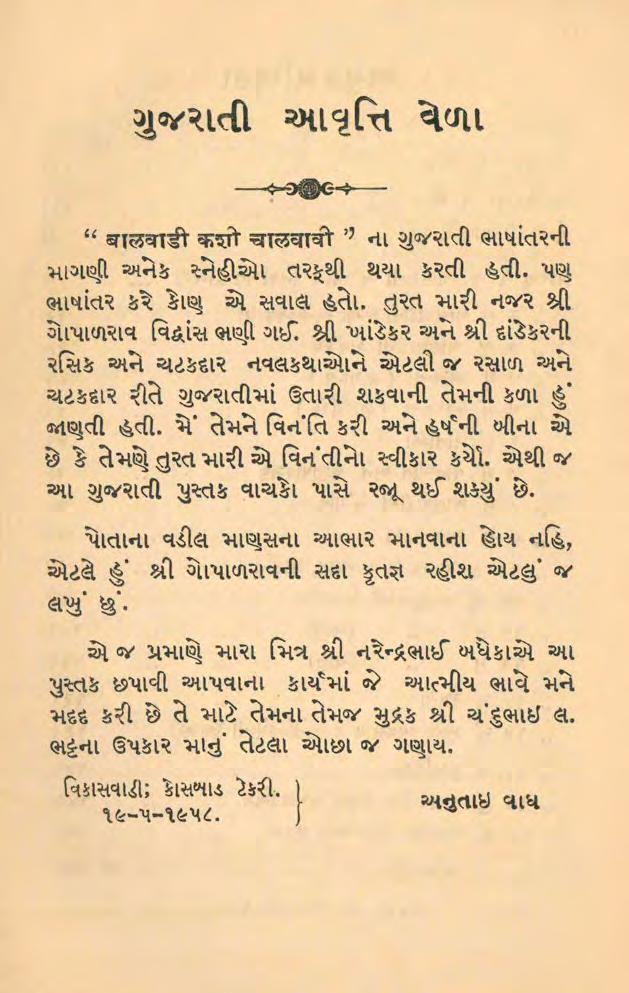 ગુજરાતી આવૃત્તિ વેળા
“ बालवाडी कशी चालवावी ” ના ગુજરાતી ભાષાંતરની
માગણી અનેક સ્નેહીઓ તરફથી થયા કરતી હતી. પણ
ભાષાંતર કરે કોણ એ સવાલ હતો. તુરત મારી નજર શ્રી
ગોપાળરાવ વિદ્વાંસ ભણી ગઈ. શ્રી ખાંડેકર અને શ્રી દાંડેકરની
રસિક અને ચટકદાર નવલકથાઓને એટલી જ રસાળ અને
ચટકદાર રીતે ગુજરાતીમાં ઉતારી શકવાની તેમની કળા હું
જાણતી હતી. મેં તેમને વિનંતિ કરી અને હર્ષની બીના એ
છે કે તેમણે તુરત મારી એ વિનંતીનો સ્વીકાર કર્યો. એથી જ
આ ગુજરાતી પુસ્તક વાચકો પાસે રજૂ થઈ શક્યું છે.
પોતાના વડીલ માણસના આભાર માનવાના હોય નહિ,
એટલે હું શ્રી ગોપાળરાવની સદા કૃતજ્ઞ રહીશ એટલું જ
લખું છું.
એ જ પ્રમાણે મારા મિત્ર શ્રી નરેન્દ્રભાઈ બધેકાએ આ
પુસ્તક છપાવી આપવાના કાર્યમાં જે આત્મીય ભાવે મને
મદદ કરી છે તે માટે તેમના તેમજ મુદ્રક શ્રી ચંદુભાઇ લ.
ભટ્ટના ઉપકાર માનું તેટલા ઓછા જ ગણાય.
વિકાસવાડી; કોસબાડ ટેકરી.
૧૯-૫-૧૯૫૮.
અનુતાઇ વાઘ